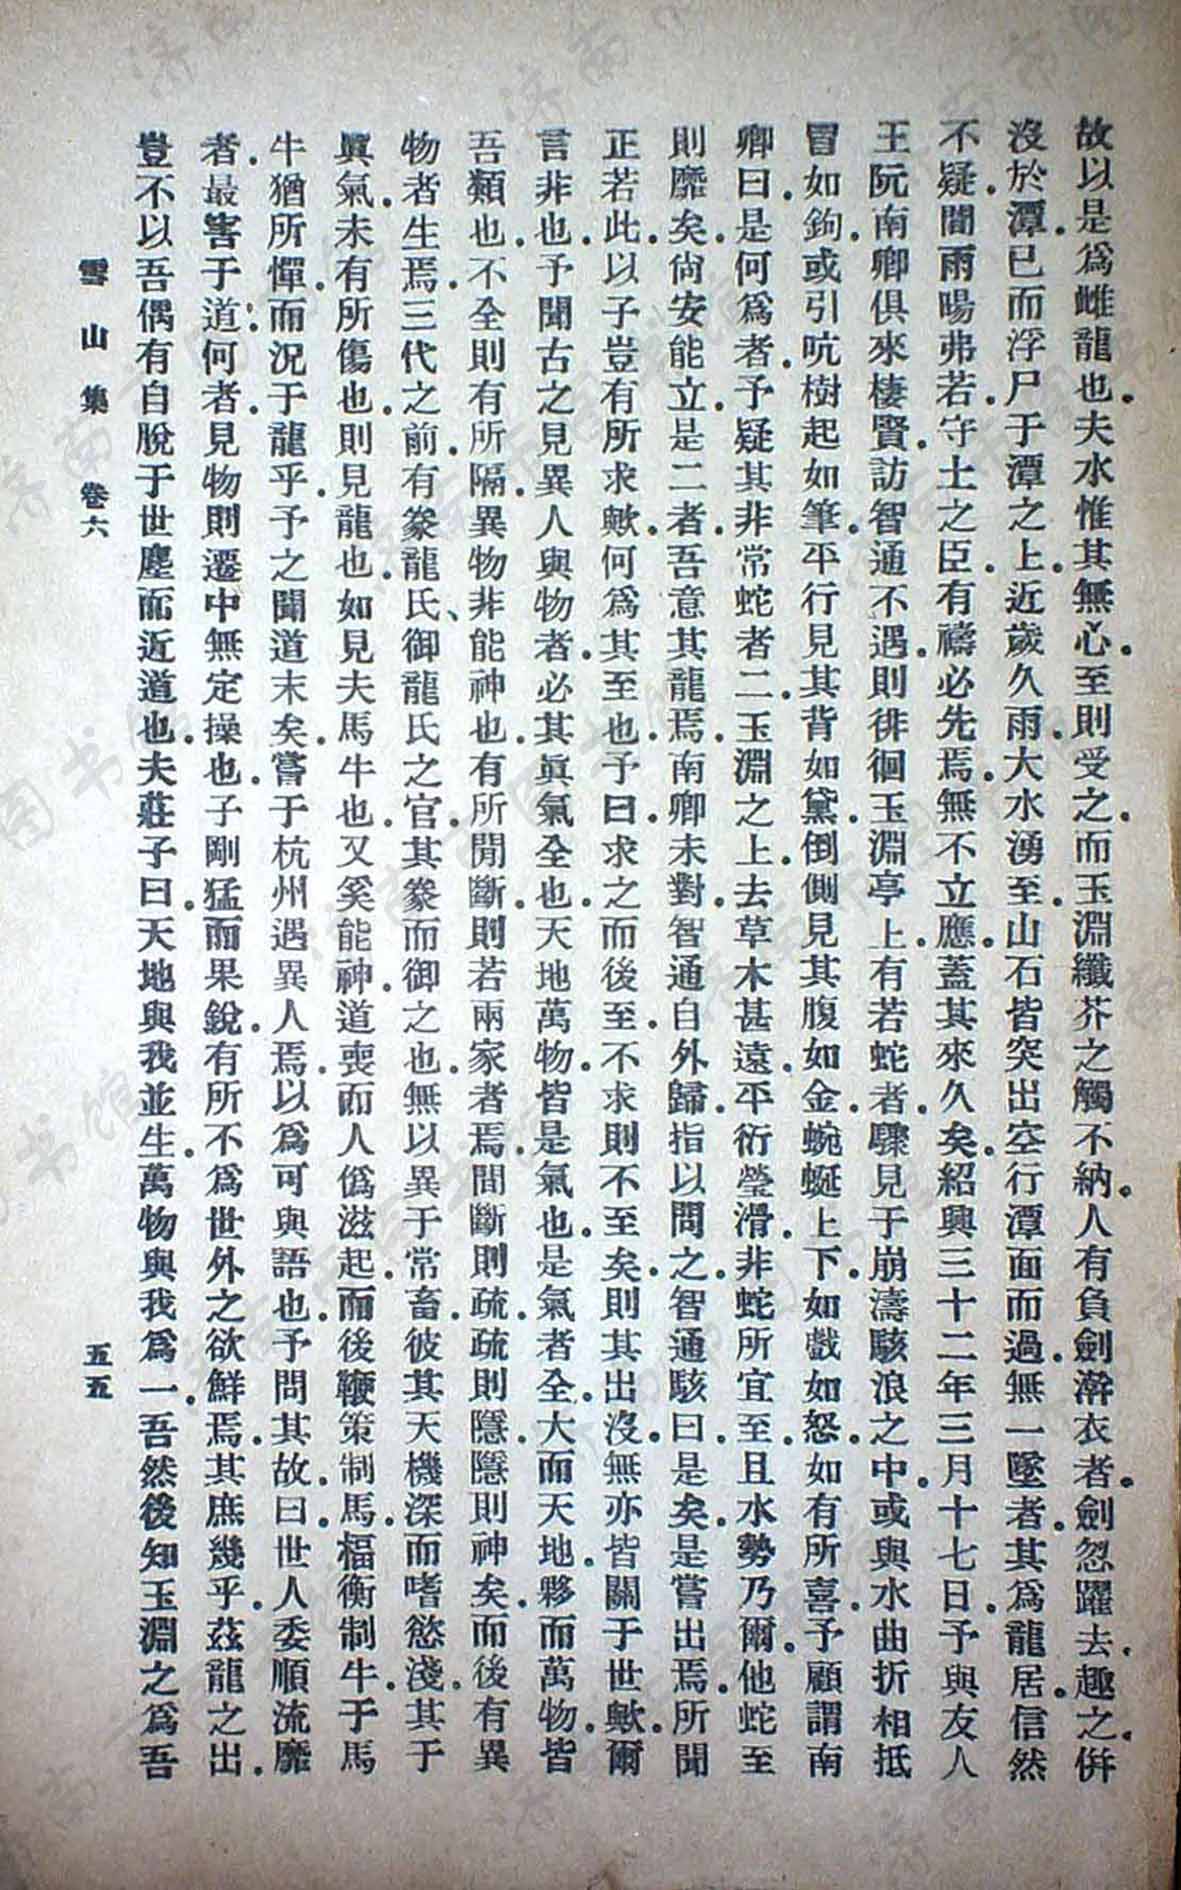 故以是爲雌龍也。夫水惟其無心。至則受之。而玉淵纖芥之觸不納。人有負劍澣衣者。劍忽躍去。趣之。倂
沒於潭。已而浮尸于潭之上。近歲久雨。大水湧至。山石皆突出空行潭面而過。無一墜者。其爲龍居。信然
不疑。閒雨暘弗若。守土之臣。有禱必先焉。無不立應。蓋其來久矣。紹興三十二年三月十七日。予與友人
王阮南卿俱來棲賢。訪智通不遇。則徘徊玉淵亭上。有若蛇者。驟見于崩濤駭浪之中。或與水曲折相抵
冒如鉤。或引吭樹起如筆。平行見其背如黛。倒側見其腹如金。蜿蜒上下。如戲如怒。如有所喜。予顧謂南
卿曰。是何爲者。予疑其非常蛇者二。玉淵之上。去草木甚遠。平衍瑩滑。非蛇所宜至。且水勢乃爾。他蛇至
則靡矣。尙安能立。是二者。吾意其龍焉。南卿未對。智通自外歸。指以問之。智通駭曰。是矣。是嘗出焉。所聞
正若此。以子豈有所求歟。何爲其至也。予曰。求之而後至。不求則不至矣。則其出沒。無亦皆關于世歟。爾
言非也。予聞古之見異人與物者。必其眞氣全也。天地萬物。皆是氣也。是氣者全。大而天地。夥而萬物。皆
吾類也。不全則有所隔。異物非能神也。有所閒斷。則若兩家者焉。間斷則疏。疏則隱。隱則神矣。而後有異
物者生焉。三代之前。有豢龍氏、御龍氏之官。其豢而御之也。無以異于常畜。彼其天機深而嗜慾淺。其于
眞氣。未有所傷也。則見龍也。如見夫馬牛也。又奚能神。道喪而人僞滋起。而後鞭策制馬。楅衡制牛。于馬
牛猶所憚。而況于龍乎。予之聞道末矣。嘗于杭州遇異人焉。以爲可與語也。予問其故。曰。世人委順流靡
者。最害于道。何者。見物則遷。中無定操也。子剛猛而果銳。有所不爲。世外之欲鮮焉。其庶幾乎。茲龍之出。
豈不以吾偶有自脫于世塵而近道也。夫莊子曰。天地與我並生。萬物與我爲一。吾然後知玉淵之爲吾
雪山集 卷六
五五